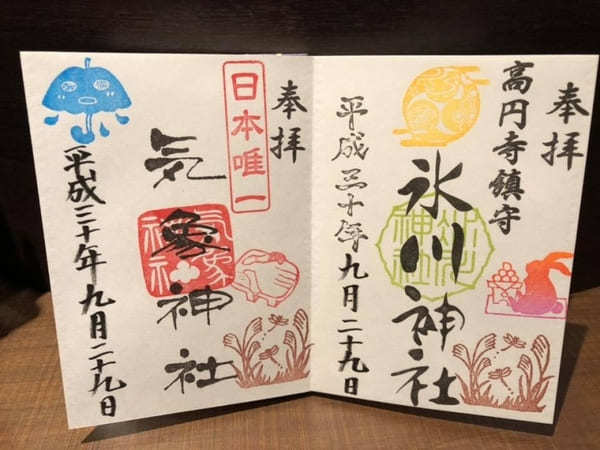 奉拝
高円寺鎮守
氷川神社
平成三十年九月二十九日
奉拝
日本唯一
気象神社
気象神社
平成三十年九月二十九日